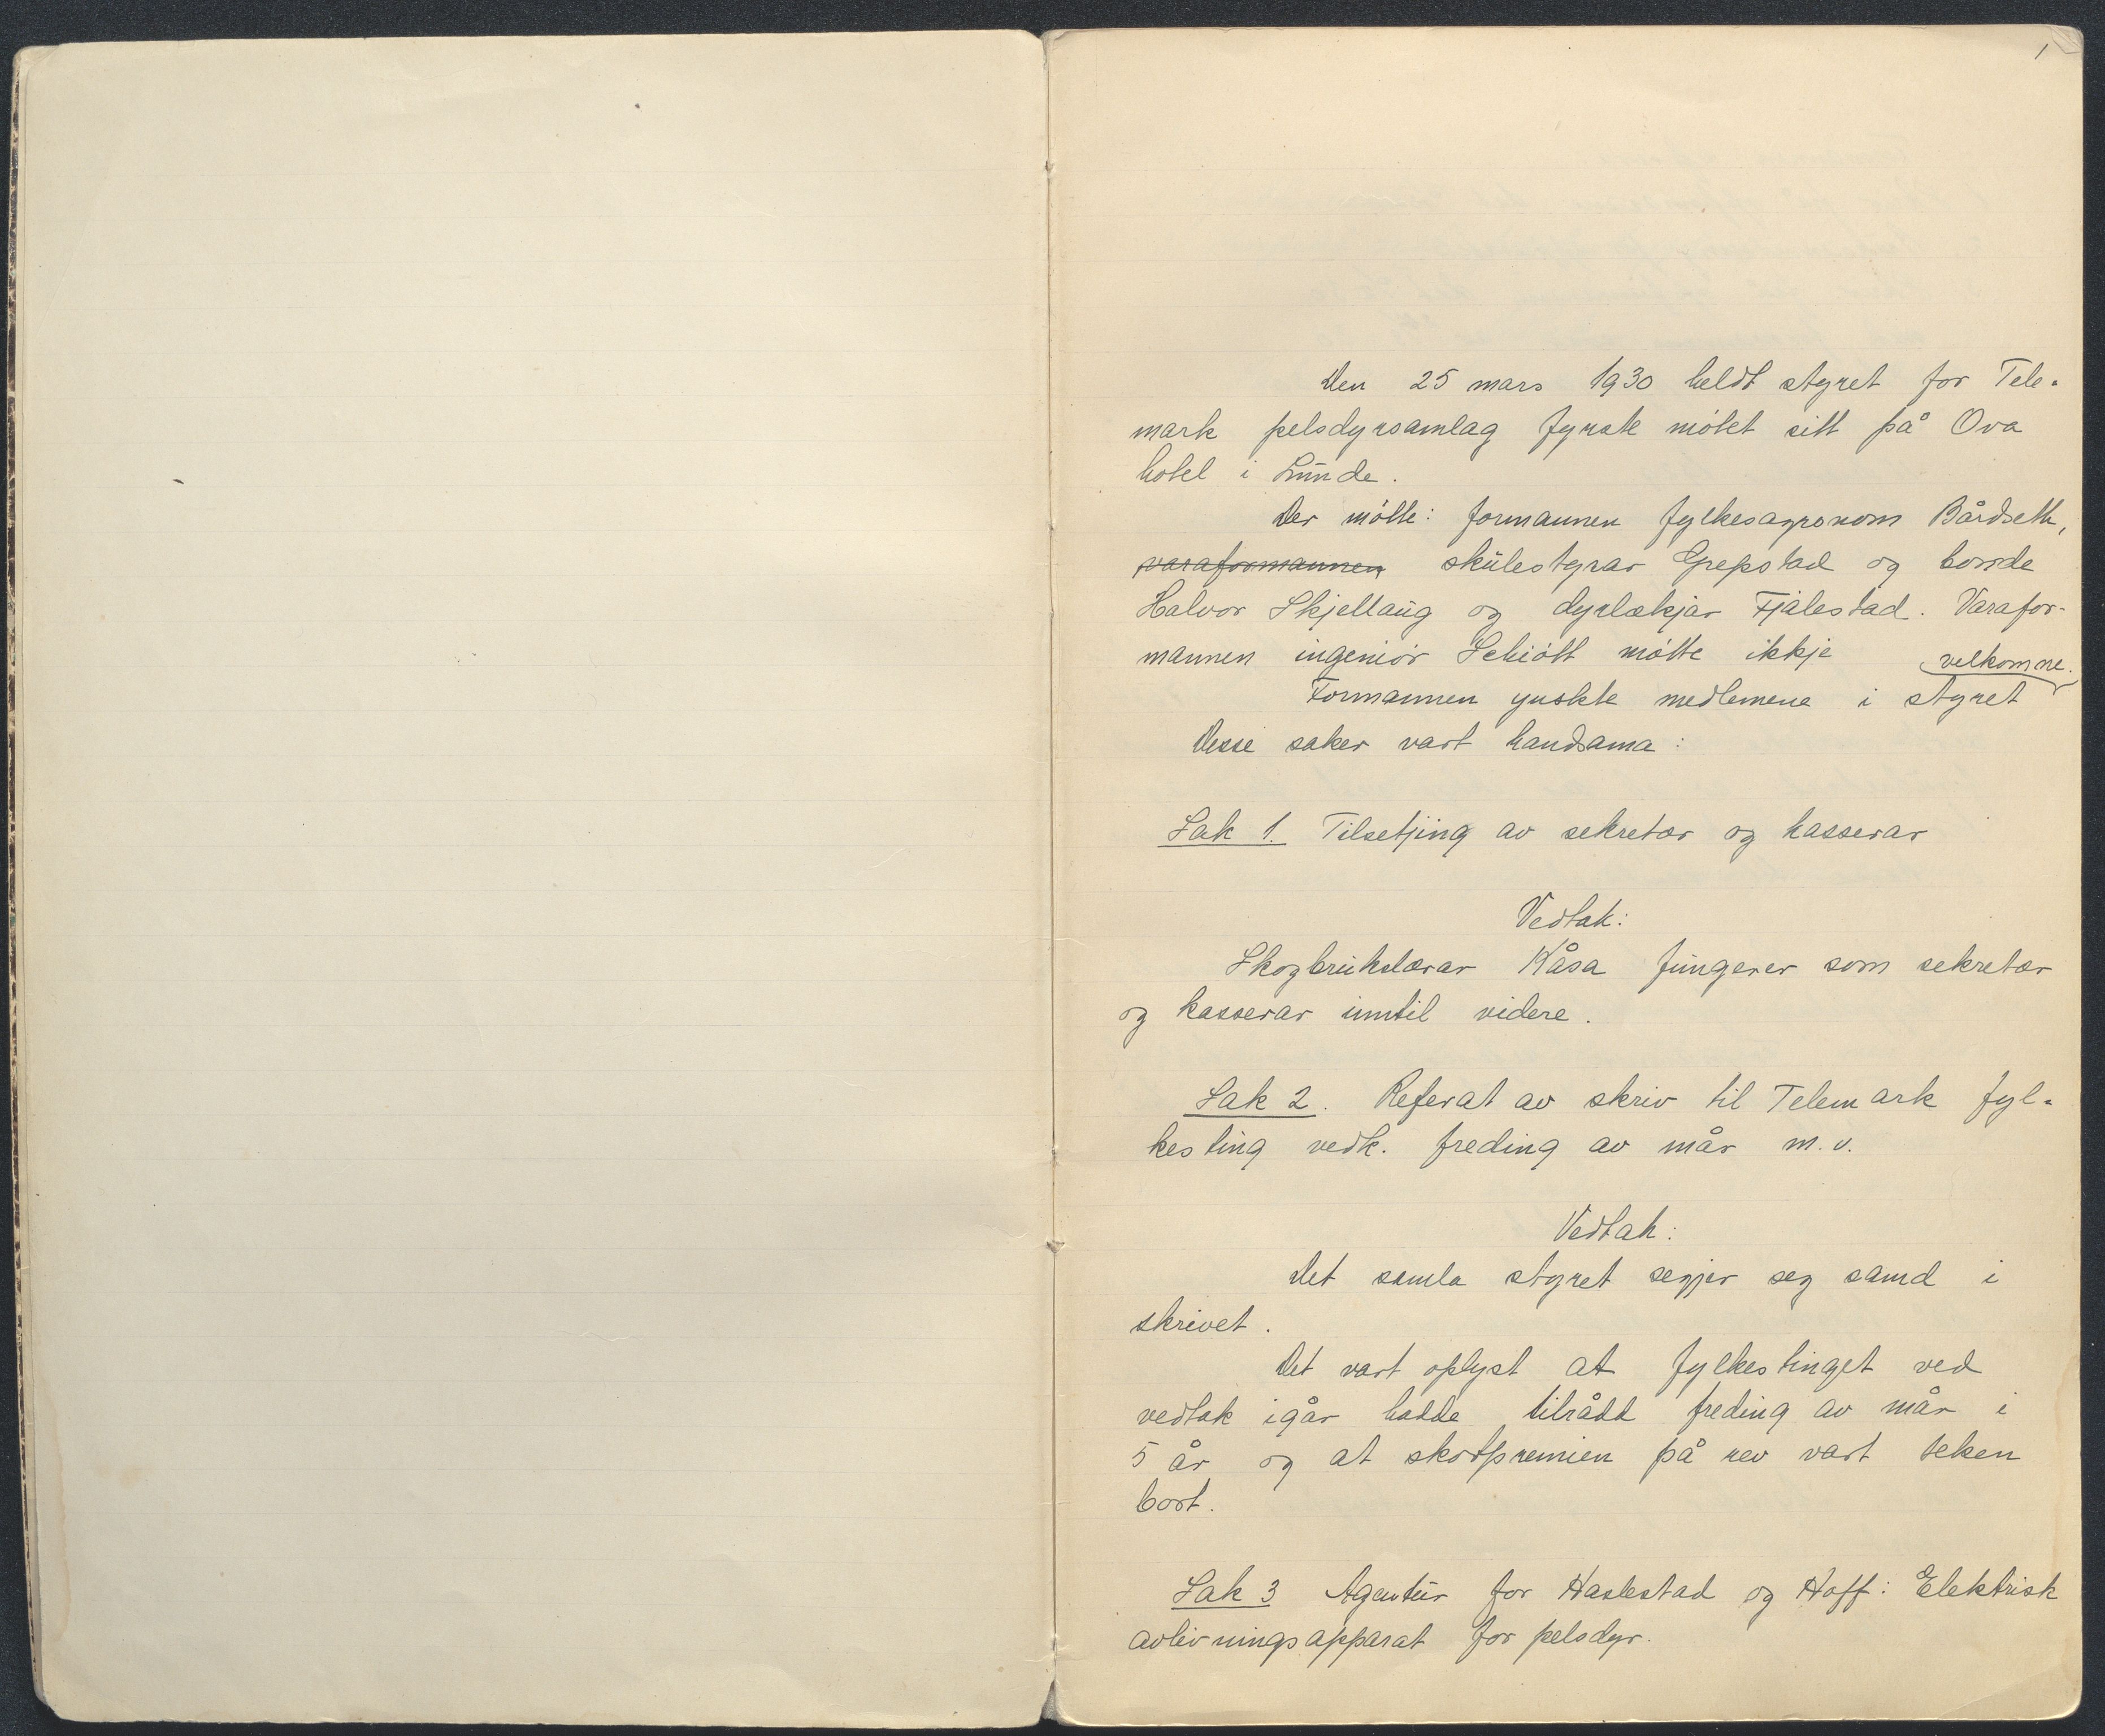 1
Den 25 mars 1930 heldt styret for Tele-
mark pelsdyrsamlag fyrste mótet sitt på Ova
hotel i Lunde.
Der mótte: formannen fylkesagronom Bårdseth,
varaformannen skulestyrar Grepstad og bonde
Halvor Skjellaug og dyrlækjar Fjalestad. Varafor-
mannen ingeniór Schiótt mótte ikkje
velkomne.
Formannen ynskte medlemene i styret
Desse saker vart handsama:
Sak 1. Tilsetjing av sekretær og kasserar
Vedtak:
Skogbrukslærar Kåsa fungerer som sekretær
og kasserar inntil videre.
Sak 2. Referat av skriv til Telemark fyl-
kesting vedk. freding av mår m.v.
Vedtak:
Det samla styret segjer seg samd i
skrivet.
Det vart oplyst at fylkestinget ved
vedtak igår hadde tilrådd freding av mår i
5 år og at skotpremien på rev vart teken
bort.
Sak 3 Agentur for Haslestad og Hoff: Elektrisk
avlivningsapparat for pelsdyr.